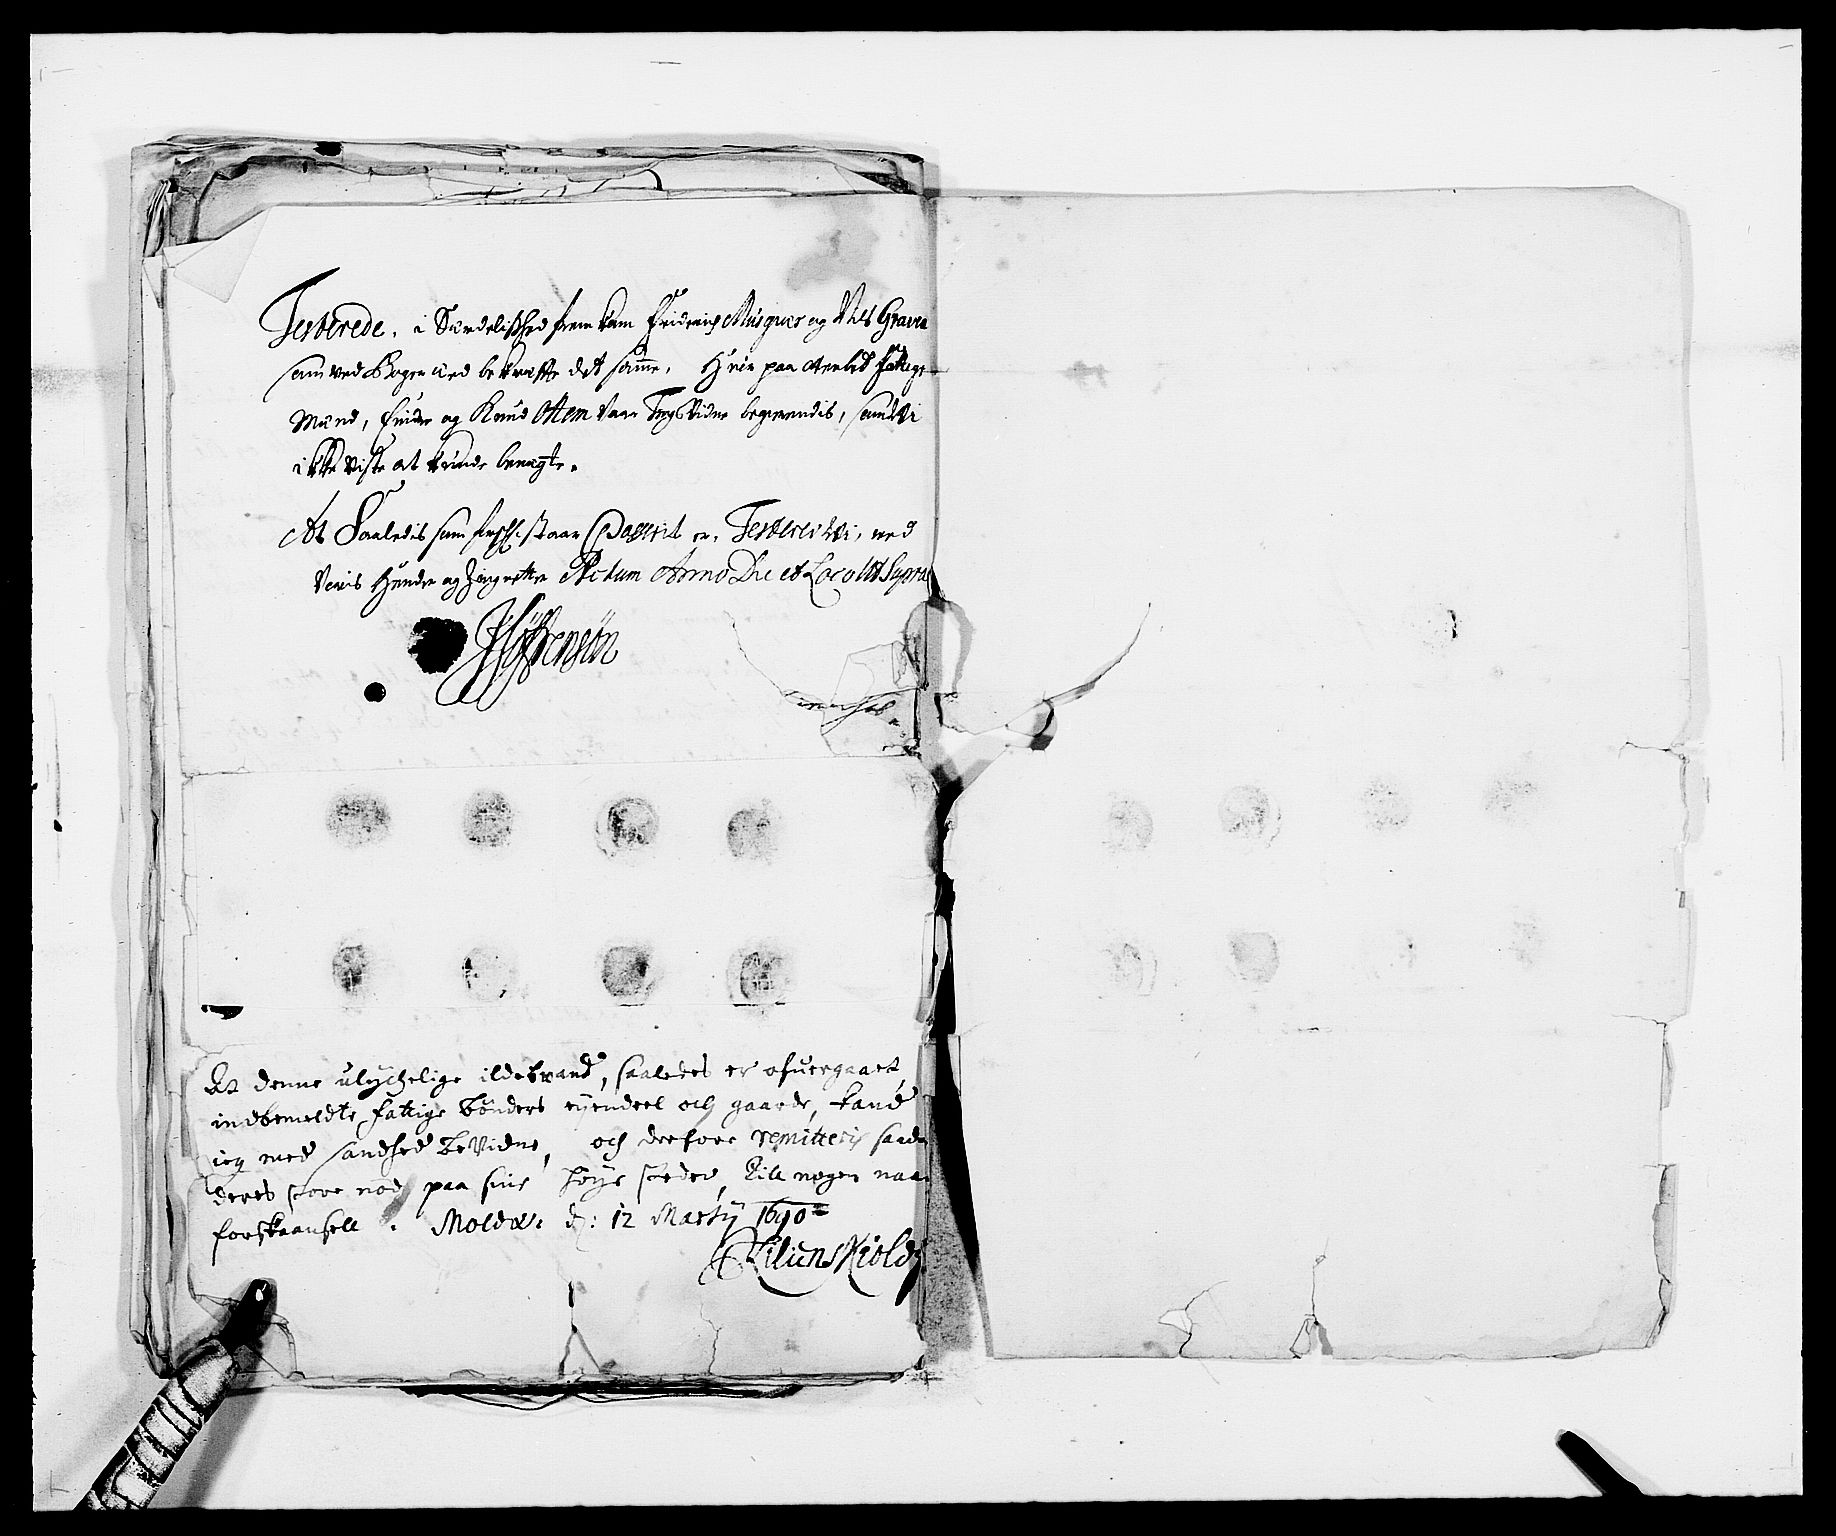 Testerede, i Særdelished frem kom Friderich Musquer og Nils Graven
som ved Bogen æd bekræfte det samme, Huer paa atenbd fattige
Mænd, Einder og Knud Ottem vaar TingsVidne begierendis, som Wi
ikke viste at kunde benægte.
At Saaledis som forschr: staar Passerit er, Testerer Wi, med
Voris Hænder og Zignetter Actum Anno Die et Loco Ut Supra
At denne ulychelige ildebrand, saaledes er ofuergaaet
indbemeldte fattige bønders eyendeel och gaarde, kand
ieg med sandhed beVidne, och derfore remitteris
deres store nød paa sine høye steder, till nogen naa
forskaansell. Molde: d: 12 Marty 1690
Lilienskiold